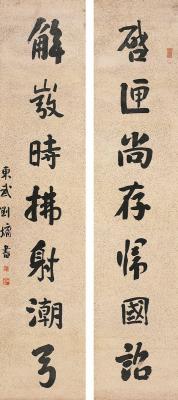 啓匣尚存歸國詔
解弢時拂射潮弓
東武劉墉書